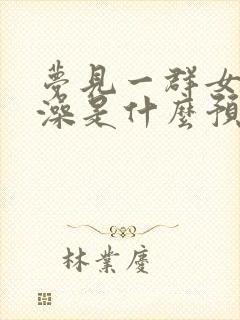 夢見一群女
澡是什麼預
林業慶